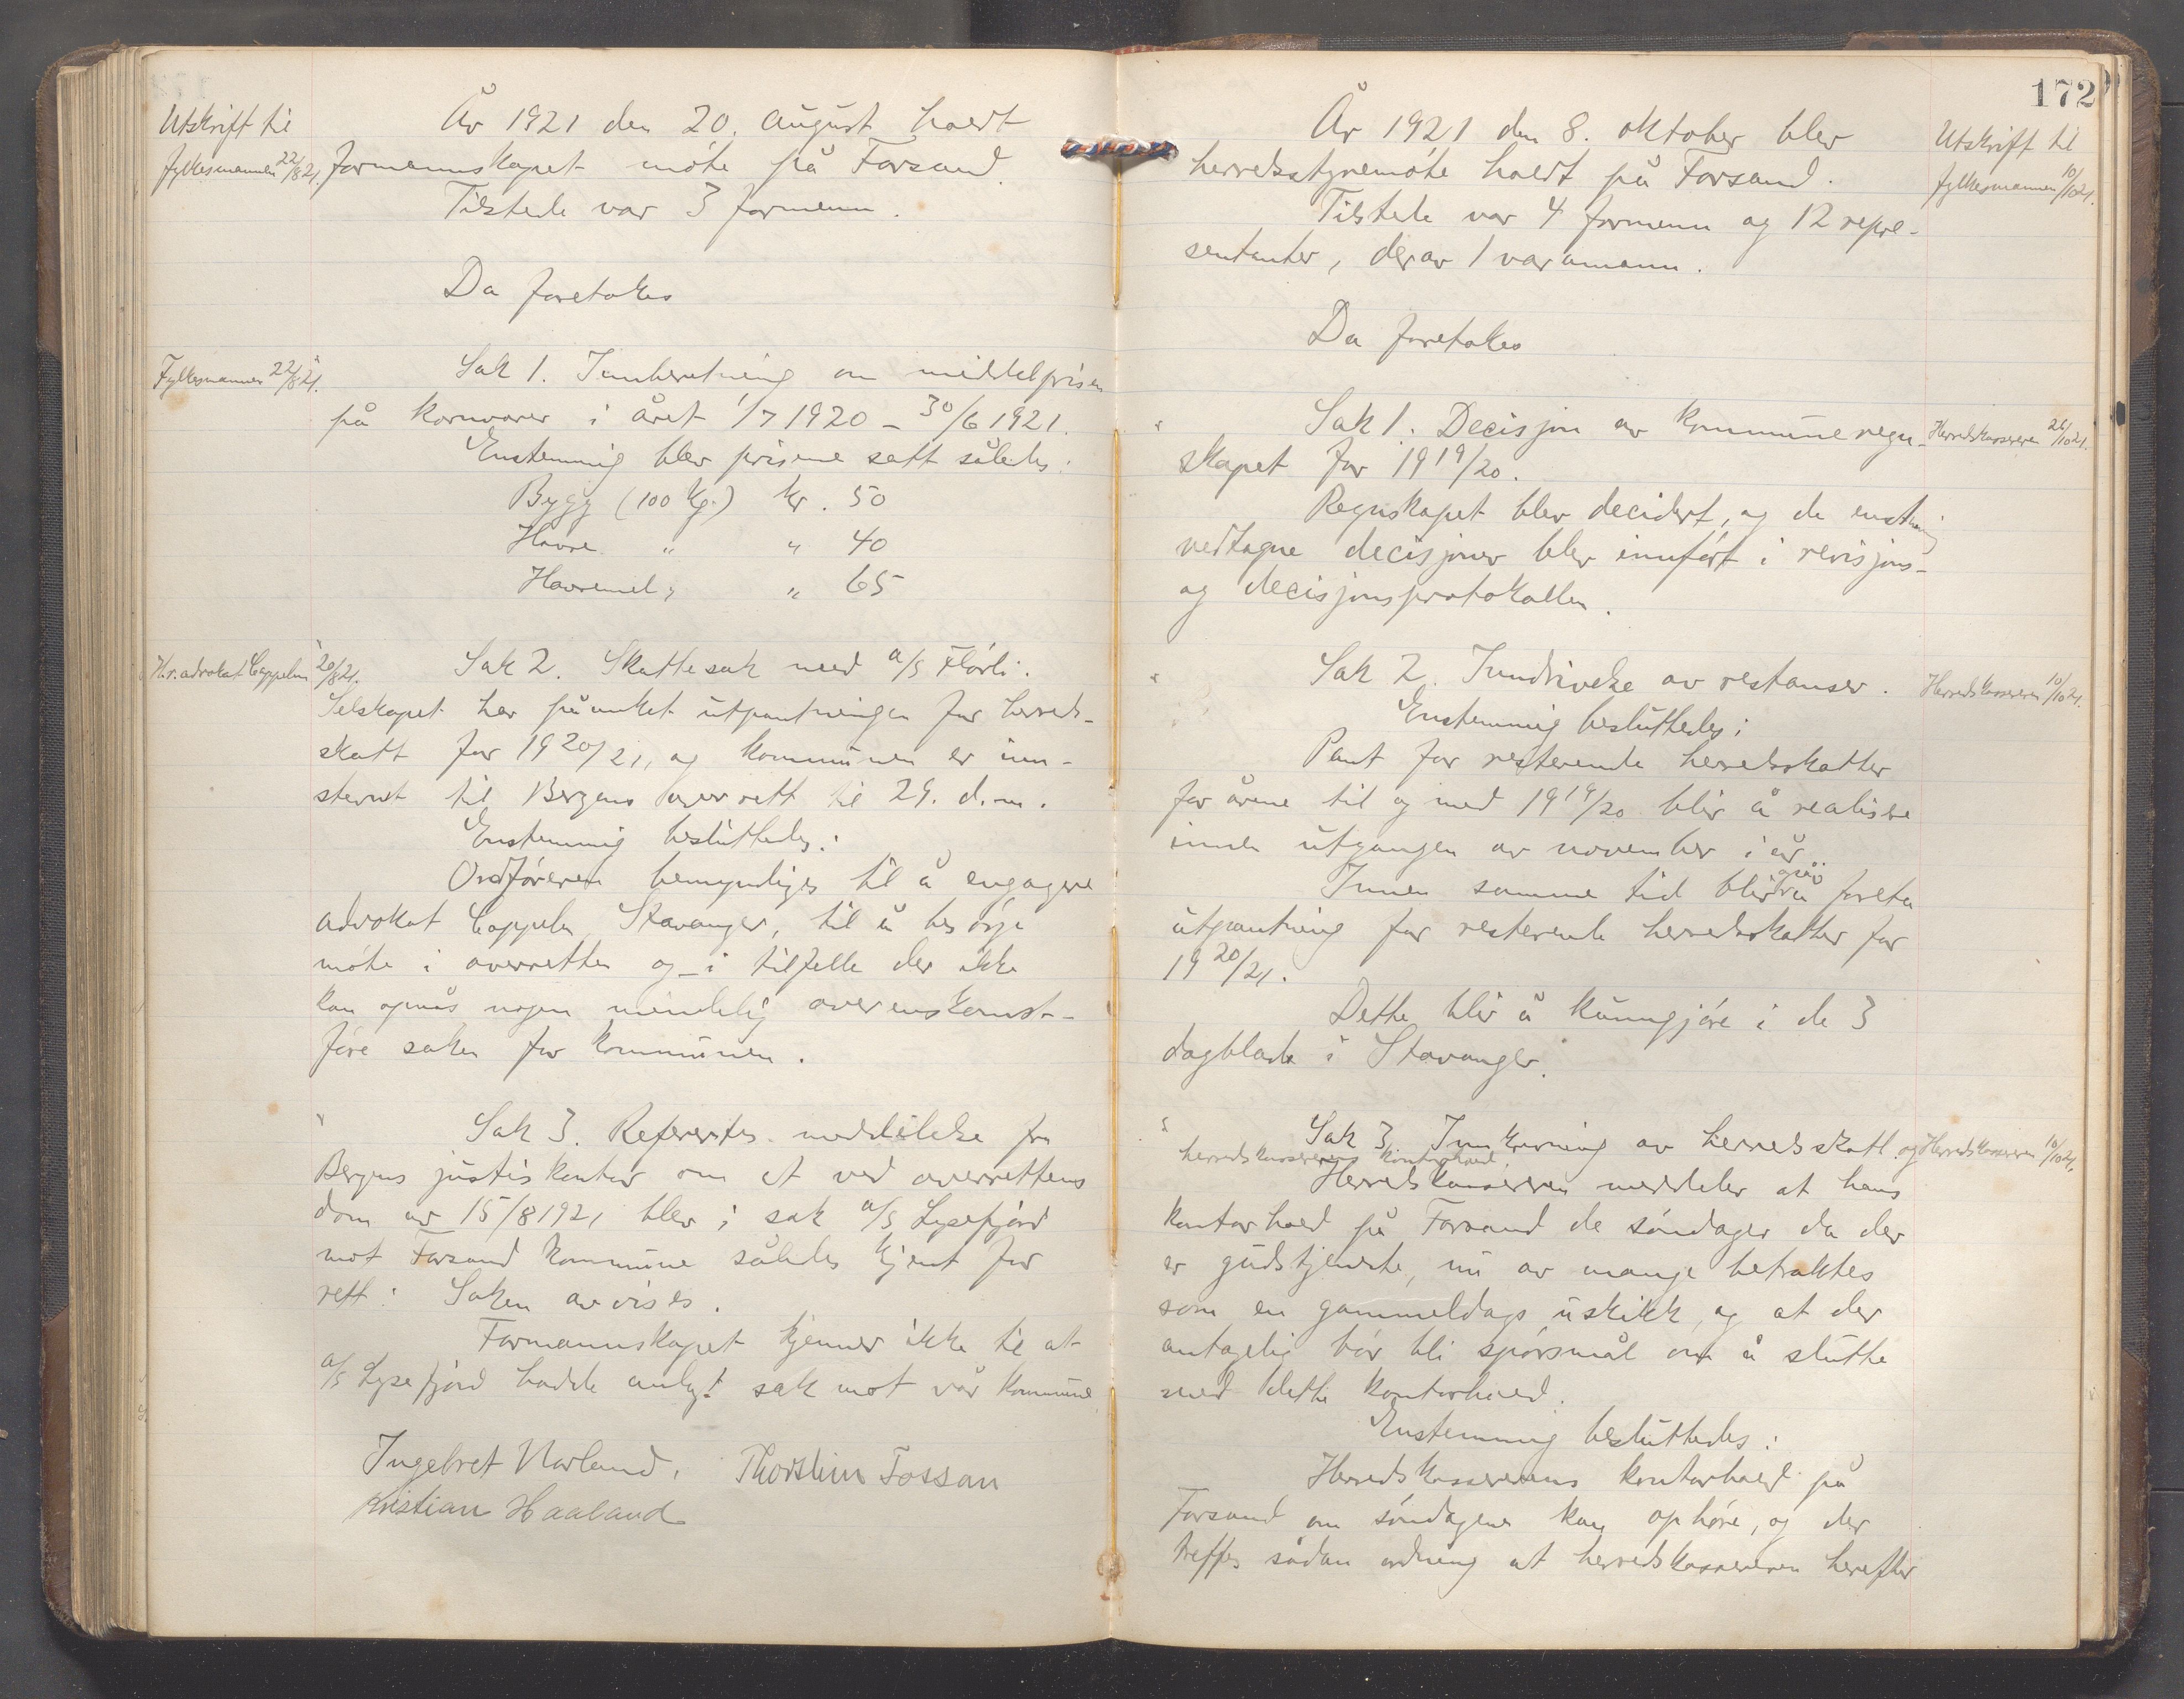 Utskrift til
fylkesmannen 22/8 21.
År 1921 den 20. august holdt
formannskapet møte på Forsand.
Tilstede var 3 formenn.
Da foretokes
Fylkesmannen 22/8 21.
Sak 1. Innberetning om middelprisen
på kornvarer i året 1/7 1920 – 30/6 1921.
Enstemmig blev prisene satt således:
Bygg (100 kg.) kr. 50
Havre " " 40
Havremel " " 65
H.r.advokat Cappelen 20/8 21.
Sak 2. Skattesak med A/S Flørli.
Selskapet har påanket utpantningen for herreds-
skatt for 1920/21, og kommunen er inn-
stevnt til Bergens overrett til 29. d.m.
Enstemmig besluttedes:
Ordføreren bemyndiges til å engagere
advokat Cappelen, Stavanger, til å besørge
møte i overretten og – i tilfelle der ikke
kan opnås nogen mindelig overenskomst –
føre saken for kommunen.
Sak 3. Refertes meddelelse fra
Bergens justiskontor om at ved overrettens
dom av 15/8 1921 blev i sak A/S Lysefjord
mot Forsand kommune således kjent for
rett: Saken avvises.
Formannskapet kjenner ikke til at
A/S Lysefjord hadde anlagt sak mot vår kommune.
Ingebret Norland, Thorstein Fossan
Kristian Haaland
172
År 1921 den 8. oktober blev
herredsstyremøte holdt på Forsand.
Utskrift til
fylkesmannen 10/10 21.
Tilstede var 4 formenn og 12 repre-
sentanter, derav 1 varamann.
Da foretokes
Sak 1. Decisjon av kommuneregn-
Herredskassereren 26/10 21.
skapet for 1919/20.
Regnskapet blev decidert, og de enstemmig
vedtagne decisjoner blev innført i revisjons-
og decisjonsprotokollen.
Sak 2. Inndrivelse av restanser.
Herredskassereren 10/10 21.
Enstemmig besluttedes:
Pant for resterende herredsskatter
for årene til og med 1919/20 blir å realisere
innen utgangen av november i år.
Innen samme tid blir også å foreta
utpantning for resterende herredsskatter for
1920/21.
Dette blir å kunngjøre i de 3
dagblade i Stavanger.
Sak 3. Innkrevning av herredsskatt og
Herredskassereren 10/10 21.
herredskassererens kontorhold.
Herredskassereren meddeler at hans
kontorhold på Forsand de søndager da der
er gudstjeneste, nu av mange betraktes
som en gammeldags uskikk, og at der
antagelig bør bli spørsmål om å slutte
med dette kontorhold.
Enstemmig besluttedes:
Herredskassererens kontorhold på
Forsand om søndagene kan ophøre, og der
treffes sådan ordning at herredskassereren herefter